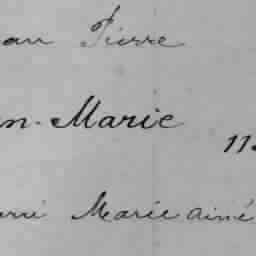 an Pierre
n-Marie
11
Marie aimé